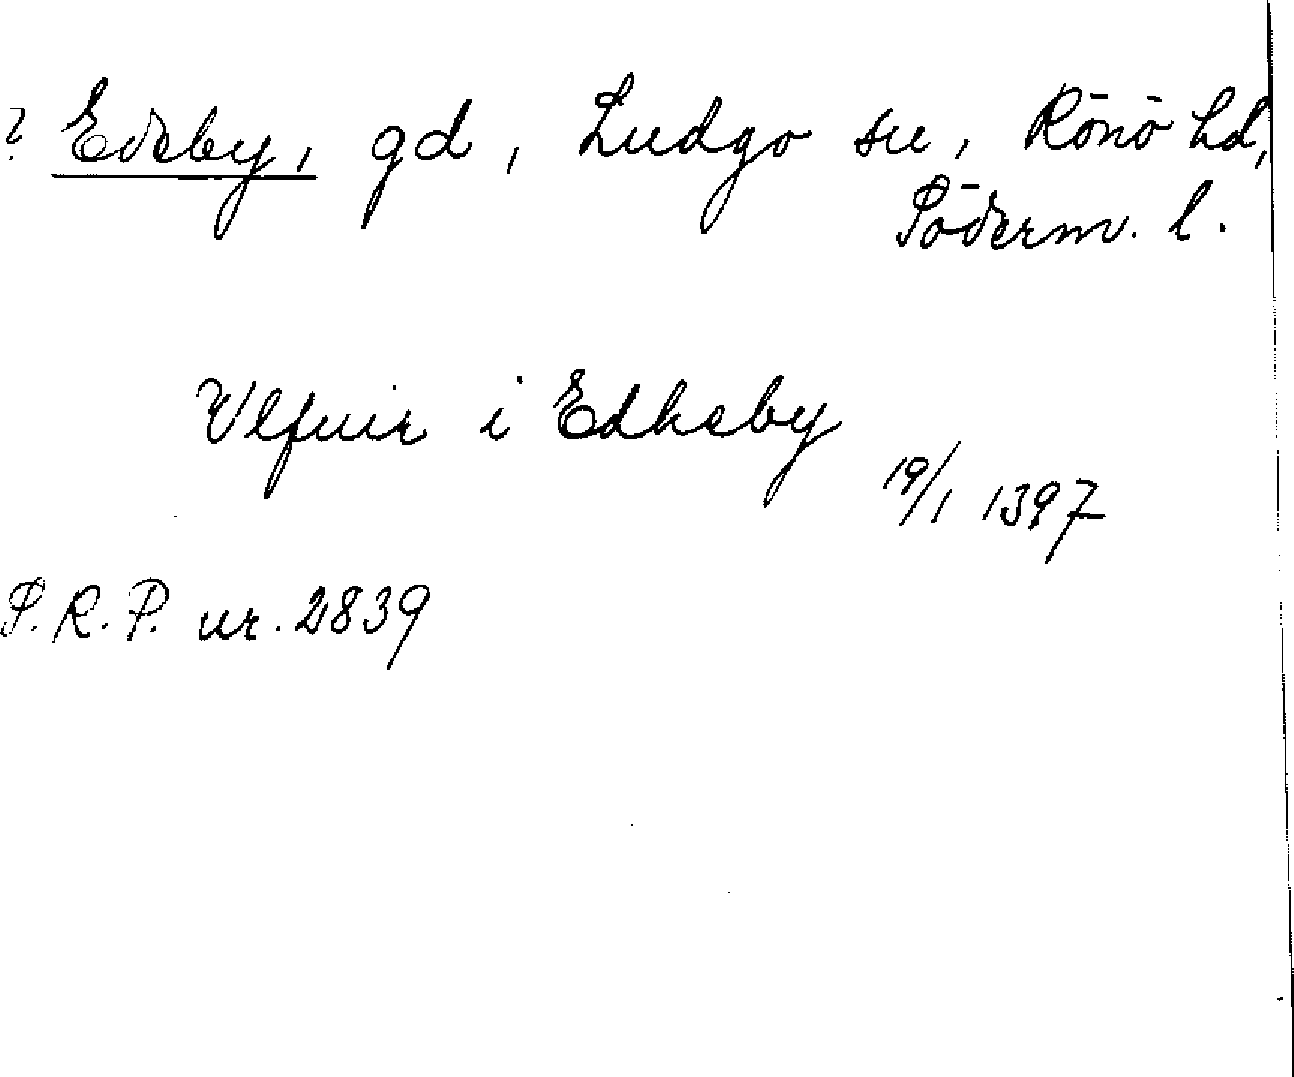 ? Edeby, gd, Ludgo sn, Rönö hd,
Söderm. l.
Ulfuir i Edheby
19/1 1397
S.R.P. nr. 2839